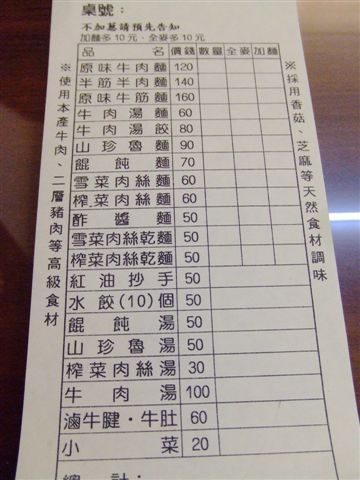 桌號：
不加蔥請預先告知
加麵多10元、全麥多10元
品名 價錢 數量 全麥 加麵
原味牛肉麵 120
半筋半肉麵 140
原味牛筋麵 160
牛肉湯麵 60
牛肉湯餃 80
山珍魯麵 90
餛飩麵 70
雪菜肉絲麵 60
榨菜肉絲麵 60
酢醬麵 50
雪菜肉絲乾麵 50
榨菜肉絲乾麵 50
紅油抄手 50
水餃(10)個 50
餛飩湯 50
山珍魯湯 50
榨菜肉絲湯 30
牛肉湯 100
滷牛腱·牛肚 60
小菜 20
總計：
※使用本產牛肉、二層豬肉等高級食材
※採用香菇、芝麻等天然食材調味